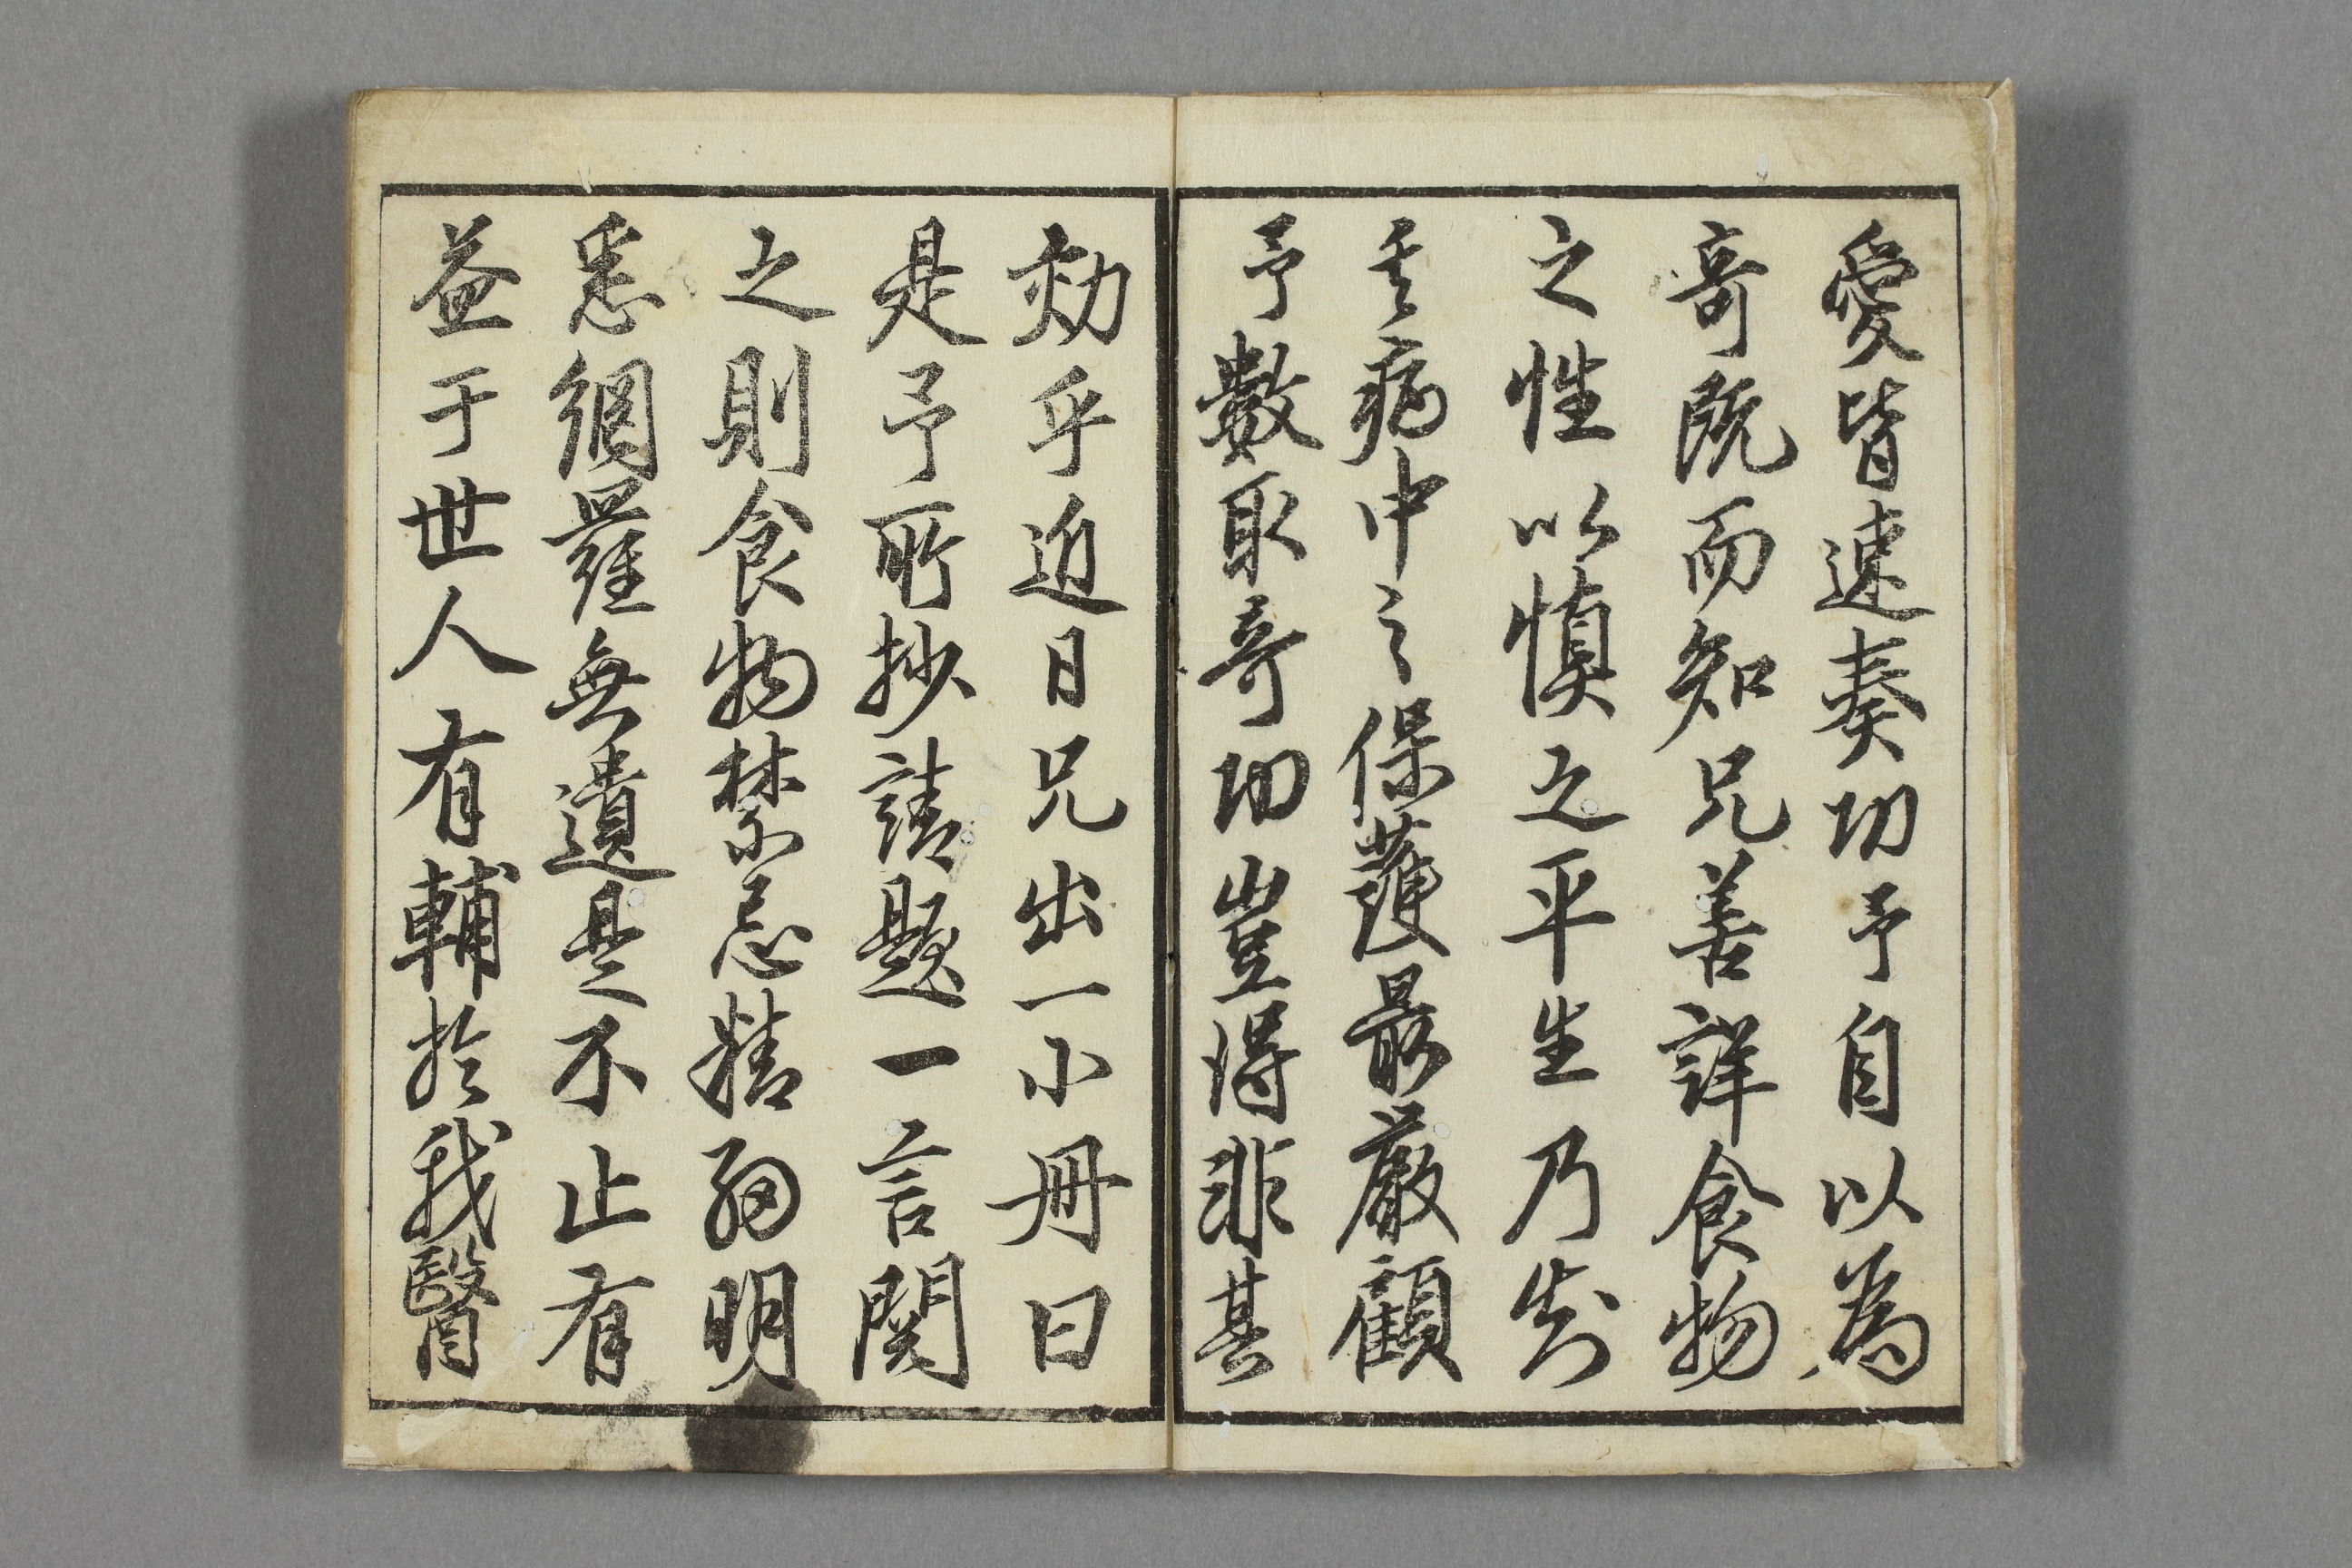 愛皆速奏功予自以為
奇既而知兄善詳食物
之性以慎之平生乃知
其病中之保護最嚴顧
予數取奇功豈得非其
効乎近日兄出一小册曰
是予所抄請題一言閱
之則食物禁忌精細明
悉網羅無遺是不止有
益于世人有輔於我醫